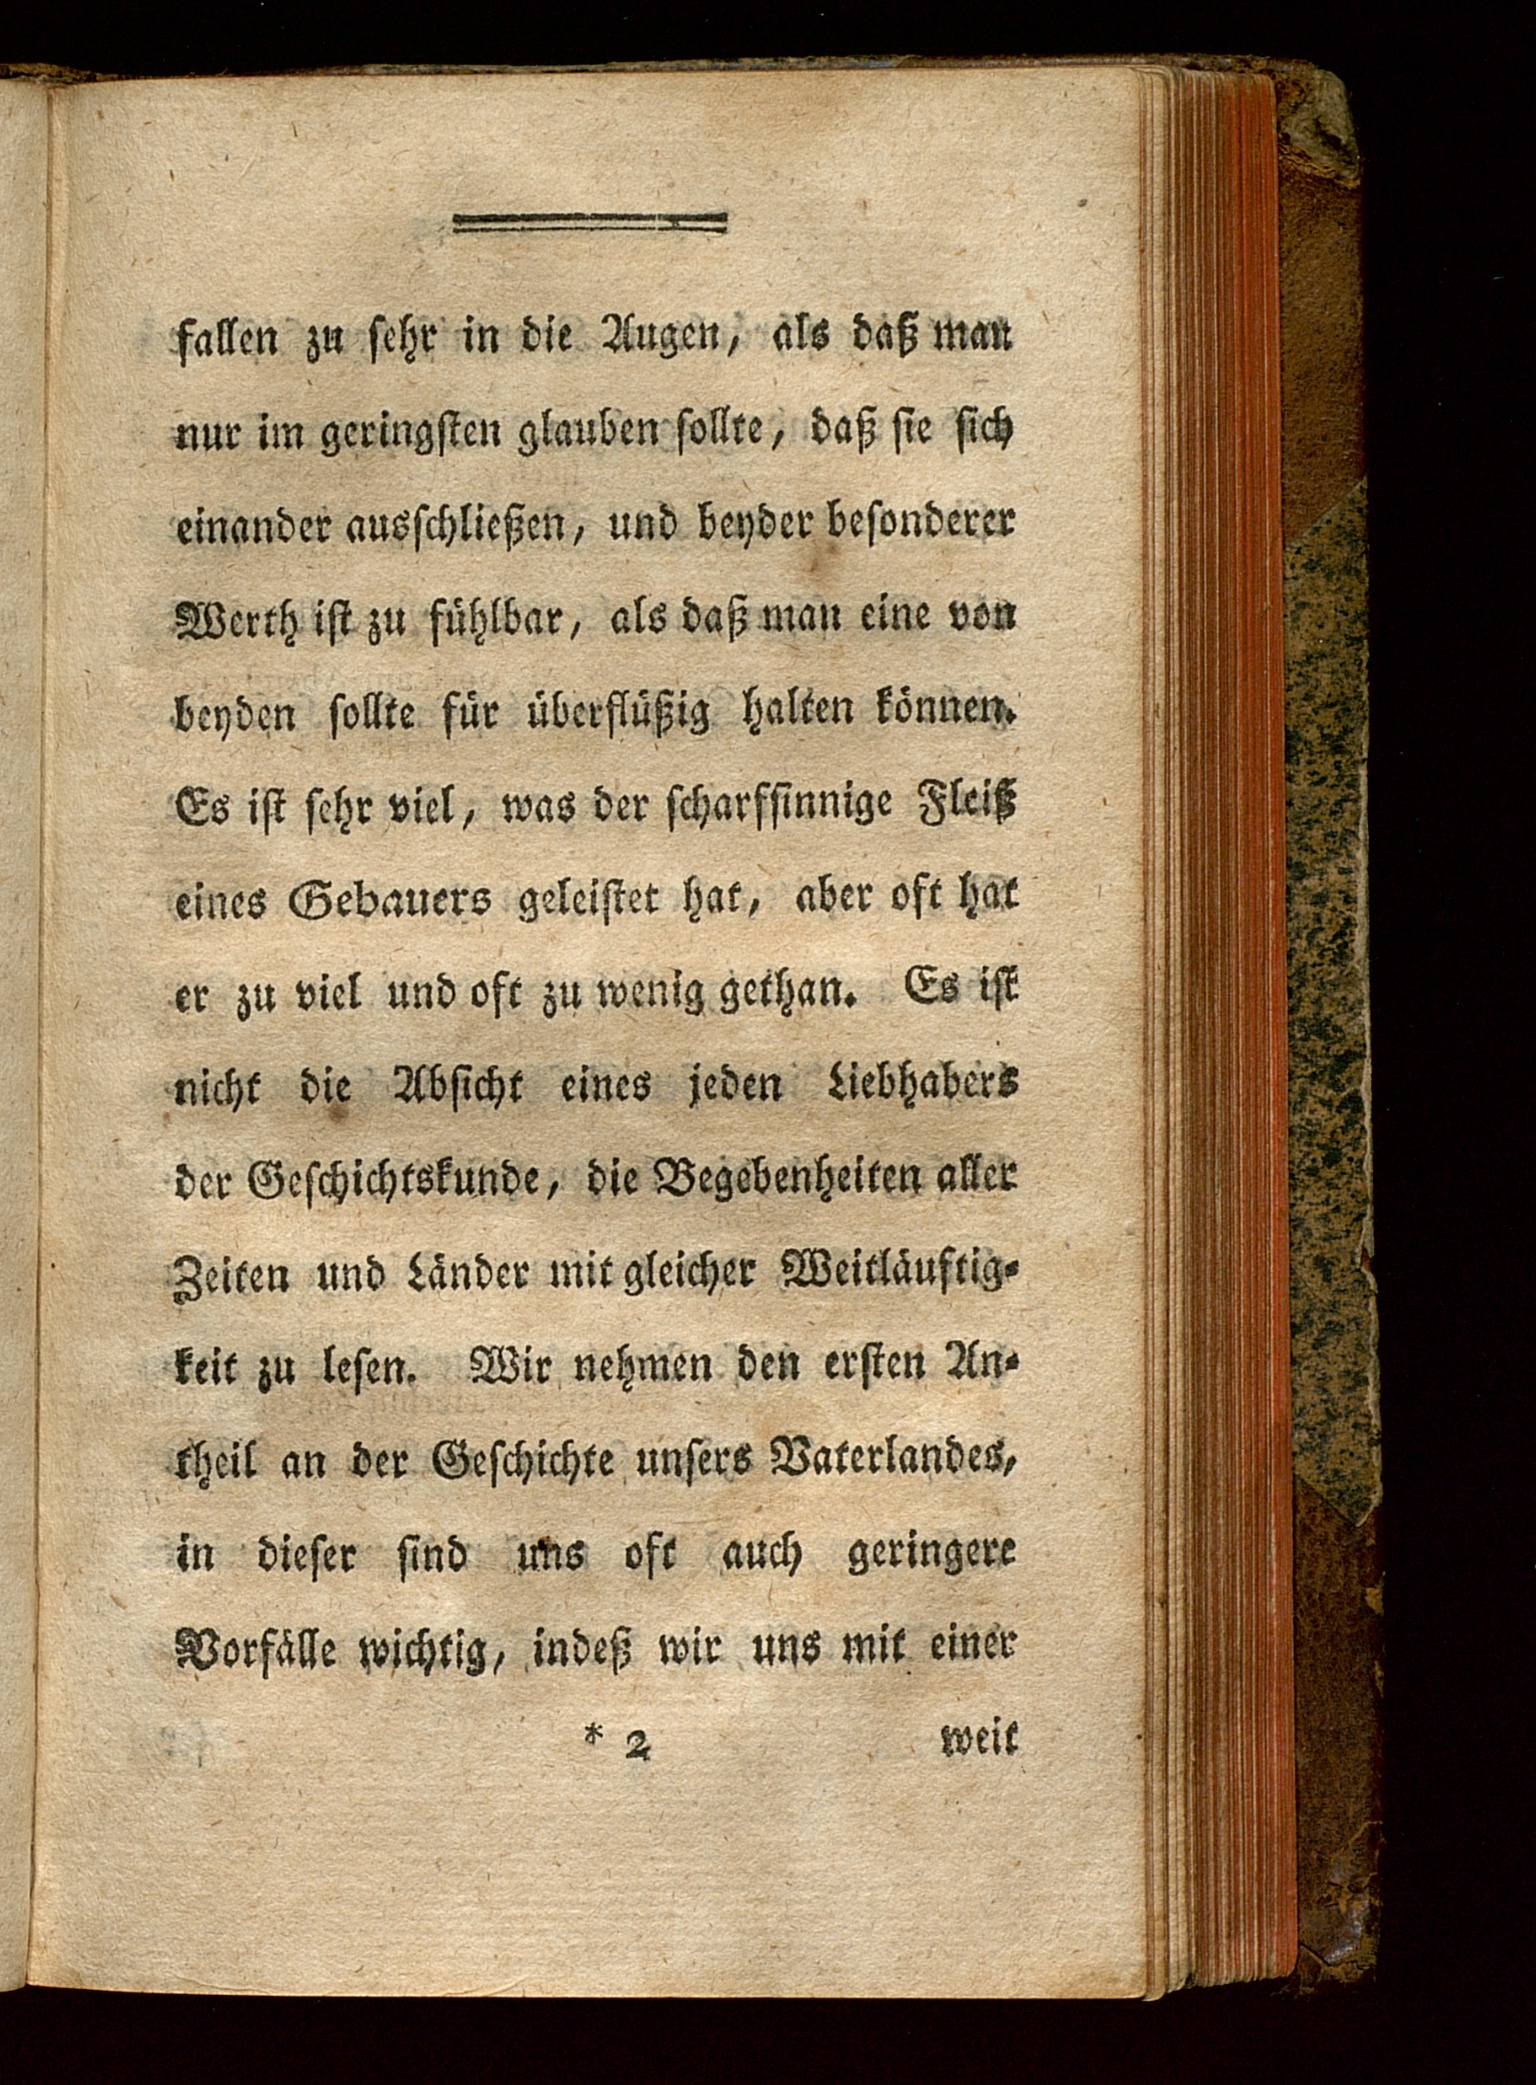 fallen zu ſehr in die Augen, als daß man
nur im geringſten glauben ſollte, daß ſie ſich
einander ausſchließen, und beyder beſonderer
Werth iſt zu fühlbar, als daß man eine von
beyden ſollte für überflüßig halten können.
Es iſt ſehr viel, was der ſcharfſinnige Fleiß
eines Gebauers geleiſtet hat, aber oft hat
er zu viel und oft zu wenig gethan. Es iſt
nicht die Abſicht eines jeden Liebhabers
der Geſchichtskunde, die Begebenheiten aller
Zeiten und Länder mit gleicher Weitläuftig-
keit zu leſen. Wir nehmen den erſten An-
theil an der Geſchichte unſers Vaterlandes,
in dieſer ſind uns oft auch geringere
Vorfälle wichtig, indeß wir uns mit einer
* 2 weit